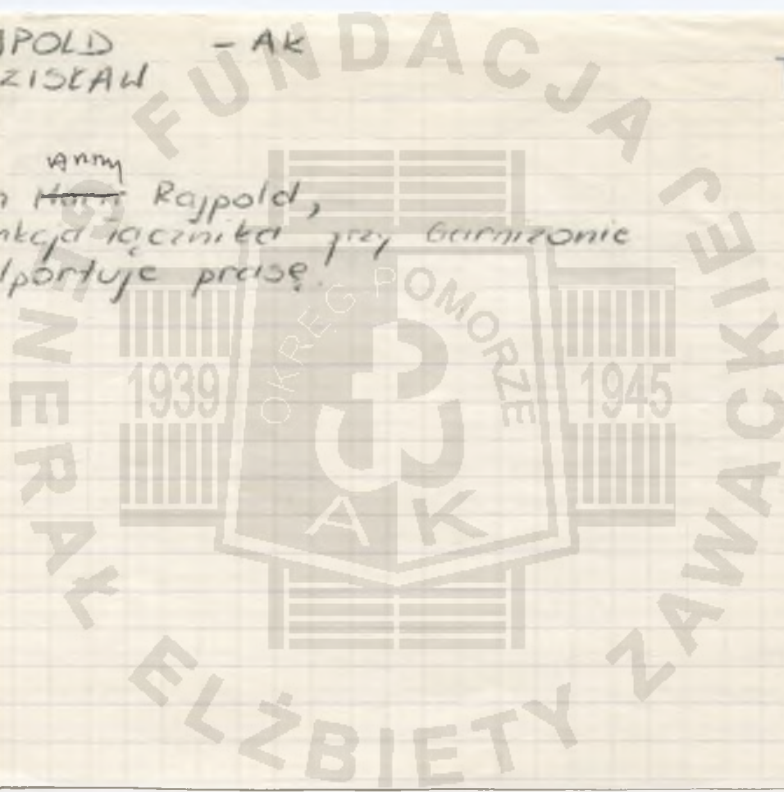 JPOLD - AK
ZISŁAW
Anny
n Marii Rajpold,
nkcja łącznika przy Garnizonie
lportuje prasę.
FUNDACJA GENERAŁ ELŻBIETY ZAWACKIEJ
OKRĘG POMORZE
1939 1945
AK